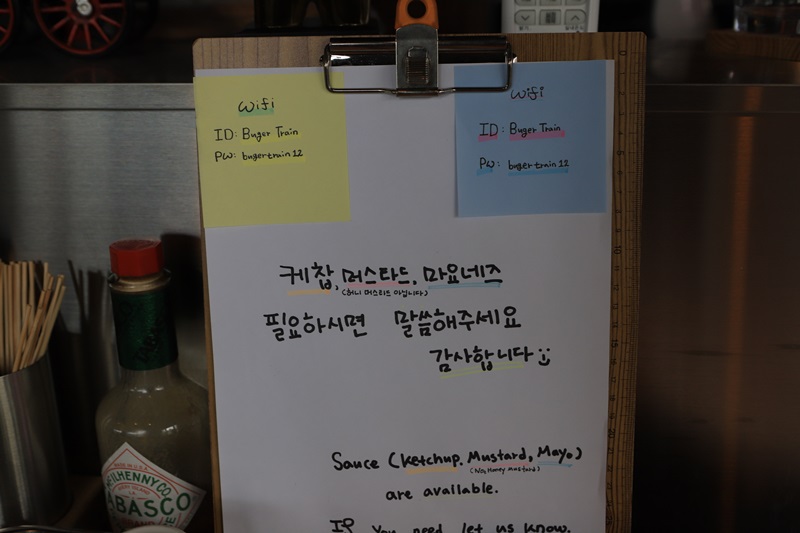 wifi
ID: Buger Train
PW: bugertrain 12
wifi
ID: Buger Train
PW: bugertrain 12
케찹, 머스타드, 마요네즈
(허니 머스타드 아닙니다)
필요하시면 말씀해주세요
감사합니다
Sauce (Ketchup, Mustard, Mayo)
(No, Honey mustard)
are available.
IF you need let us know.
ILHENNY CO.
ABASCO